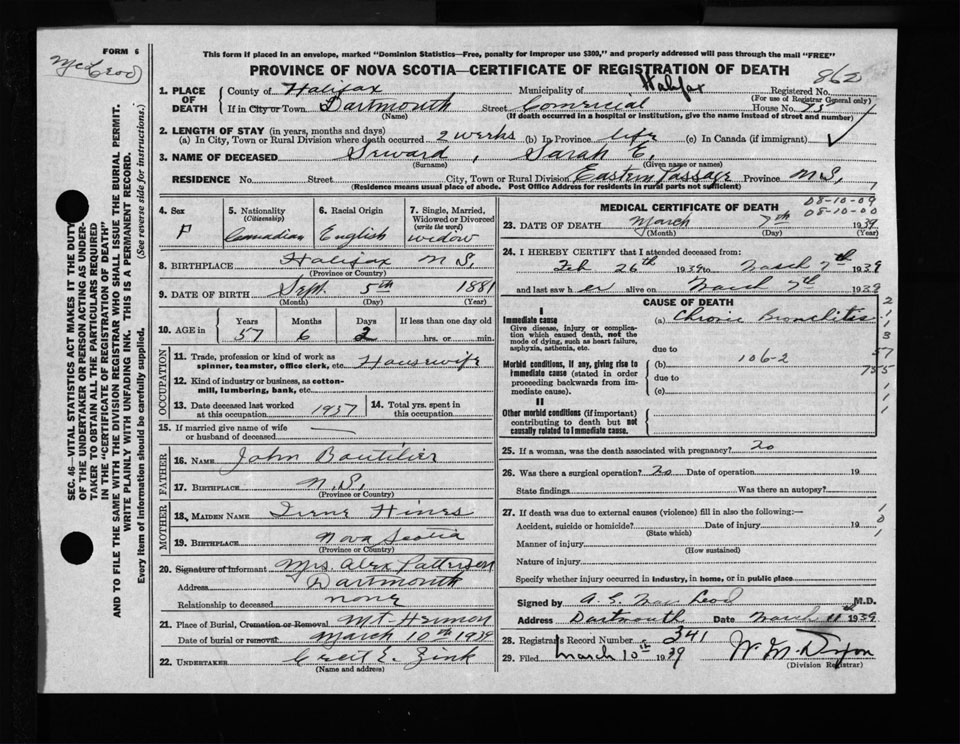 FORM 6
McLeod
This form if placed in an envelope, marked "Dominion Statistics—Free, penalty for improper use $300," and properly addressed will pass through the mail "FREE"
PROVINCE OF NOVA SCOTIA—CERTIFICATE OF REGISTRATION OF DEATH
862
1. PLACE OF DEATH
County of Halifax Municipality of Halifax Registered No.
(For use of Registrar General only)
If in City or Town Dartmouth Street Comercial House No.
(Name) (If death occurred in a hospital or institution, give the name instead of street and number)
2. LENGTH OF STAY (in years, months and days)
(a) In City, Town or Rural Division where death occurred 2 weeks (b) In Province life (c) In Canada (if immigrant)
3. NAME OF DECEASED Seward, Sarah E,
(Surname) (Given name or names)
RESIDENCE No. Street City, Town or Rural Division Eastern Passage Province N.S,
(Residence means usual place of abode. Post Office Address for residents in rural parts not sufficient)
4. Sex F
5. Nationality (Citizenship) Canadian
6. Racial Origin English
7. Single, Married, Widowed or Divorced (write the word) widow
8. BIRTHPLACE Halifax N S,
(Province or Country)
9. DATE OF BIRTH Sept. 5th 1881
(Month) (Day) (Year)
10. AGE in Years Months Days If less than one day old
57 6 2 hrs. or min.
OCCUPATION
11. Trade, profession or kind of work as spinner, teamster, office clerk, etc. Housewife
12. Kind of industry or business, as cotton-mill, lumbering, bank, etc.
13. Date deceased last worked at this occupation 1937
14. Total yrs. spent in this occupation
15. If married give name of wife or husband of deceased —
FATHER
16. NAME John Boutilier
17. BIRTHPLACE N.S,
(Province or Country)
MOTHER
18. MAIDEN NAME Irene Hines
19. BIRTHPLACE Nova Scotia
(Province or Country)
20. Signature of Informant Mrs. Alex Patterson
Address Dartmouth
Relationship to deceased none
21. Place of Burial, Cremation or Removal Mt Hermon
Date of burial or removal March 10th 1939
22. UNDERTAKER Creit E. Zink
(Name and address)
08-10-09
08-10-00
MEDICAL CERTIFICATE OF DEATH
23. DATE OF DEATH March 7th 1939
(Month) (Day) (Year)
24. I HEREBY CERTIFY that I attended deceased from:
Feb 26th 1939 to March 7th 1939
and last saw her alive on March 7th 1939
CAUSE OF DEATH
I
Immediate cause
Give disease, injury or complication which caused death, not the mode of dying, such as heart failure, asphyxia, asthenia, etc.
(a) Chronic Bronchitis
due to
Morbid conditions, if any, giving rise to immediate cause (stated in order proceeding backwards from immediate cause).
(b) 106-2
due to
(c)
II
Other morbid conditions (if important) contributing to death but not causally related to immediate cause.
2
1
1
3
57
755
1
1
1
25. If a woman, was the death associated with pregnancy? no
26. Was there a surgical operation? no Date of operation 19
State findings Was there an autopsy?
27. If death was due to external causes (violence) fill in also the following:—
Accident, suicide or homicide? Date of injury 19
(State which)
Manner of injury
(How sustained)
Nature of injury
Specify whether injury occurred in industry, in home, or in public place
1
0
1
Signed by A. S. MacLeod M.D.
Address Dartmouth Date March 11th 1939
28. Registrar's Record Number 341
29. Filed March 10th 1939 W. M. Dixon
(Division Registrar)
SEC. 46—VITAL STATISTICS ACT MAKES IT THE DUTY
OF THE UNDERTAKER OR PERSON ACTING AS UNDERTAKER TO OBTAIN ALL THE PARTICULARS REQUIRED
IN THE "CERTIFICATE OF REGISTRATION OF DEATH"
AND TO FILE THE SAME WITH THE DIVISION REGISTRAR WHO SHALL ISSUE THE BURIAL PERMIT.
WRITE PLAINLY WITH UNFADING INK. THIS IS A PERMANENT RECORD.
Every item of information should be carefully supplied. (See reverse side for instructions.)